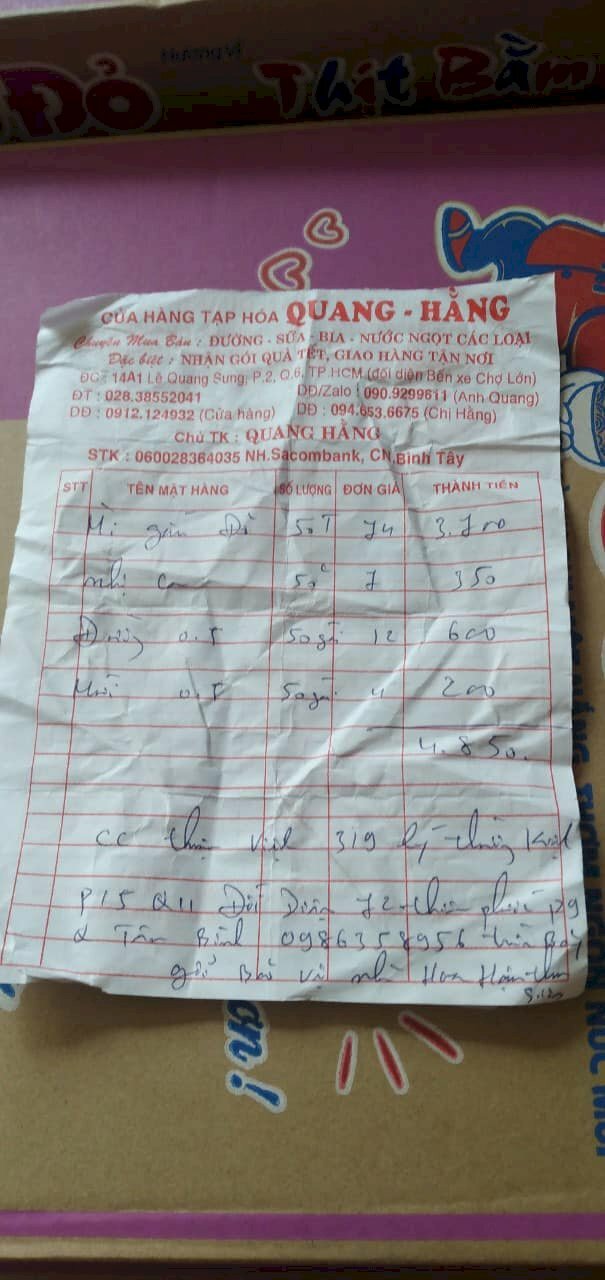 ĐỎ Thịt Bằm
CỬA HÀNG TẠP HÓA QUANG - HẰNG
Chuyên Mua Bán : ĐƯỜNG - SỮA - BIA - NƯỚC NGỌT CÁC LOẠI
Đặc biệt : NHẬN GÓI QUÀ TẾT, GIAO HÀNG TẬN NƠI
ĐC : 14A1 Lê Quang Sung, P.2, Q.6, TP.HCM (đối diện Bến xe Chợ Lớn)
ĐT : 028.38552041 DĐ/Zalo : 090.9299611 (Anh Quang)
DĐ : 0912.124932 (Cửa hàng) DĐ : 094.653.6675 (Chị Hằng)
Chủ TK : QUANG HẰNG
STK : 060028364035 NH.Sacombank, CN.Bình Tây
STT TÊN MẶT HÀNG SỐ LƯỢNG ĐƠN GIÁ THÀNH TIỀN
Mì gấu Đỏ 50T 74 3.700
50 7 350
Đường 0.5 50gói 12 600
Muối 0.5 50gói 4 200
4.850.
CC 319 lý thường Kiệt
P15 Q11 Đối Diện 72 P9
Q Tân Bình 0986358956
gửi Bảo vệ nhà